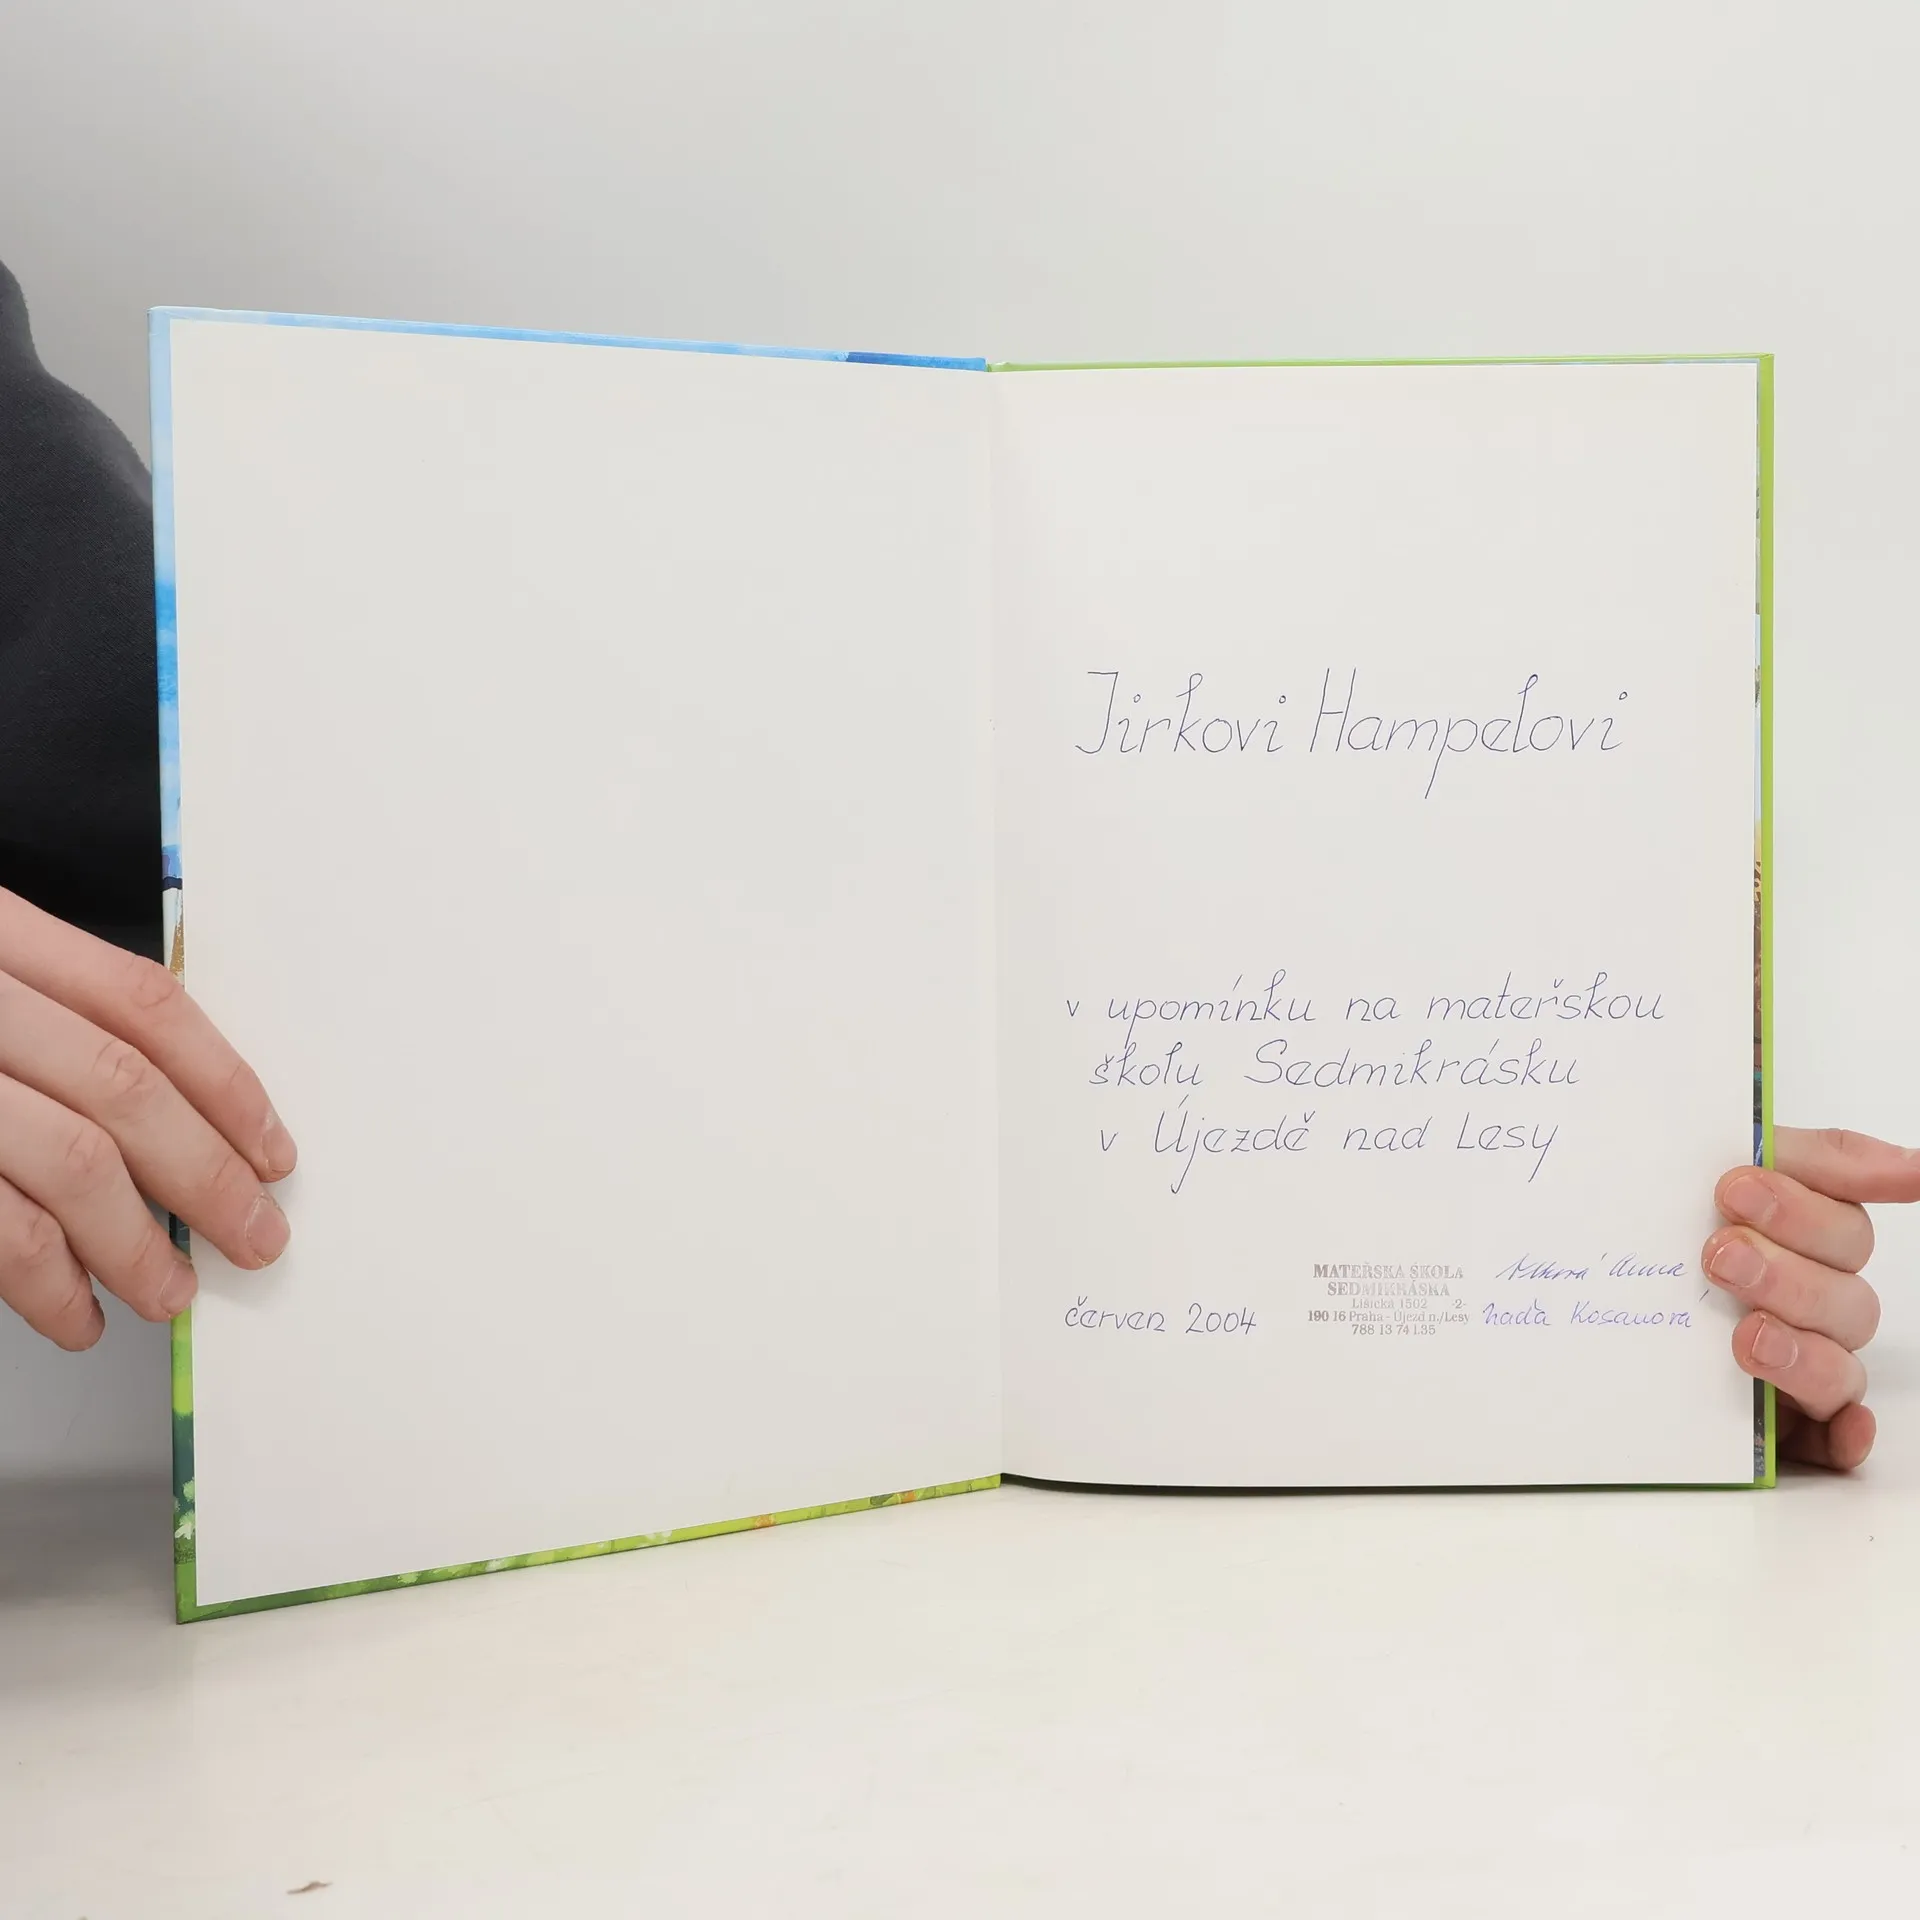 Jirkovi Hampelovi
v upomínku na mateřskou
školu Sedmikrásku
v Újezdě nad Lesy
červen 2004
MATEŘSKA ŠKOLA
SEDMIKRÁSKA
Lišická 1502 -2-
190 16 Praha - Újezd n./Lesy
788 13 74 L35
Anna
Naďa Kosanová